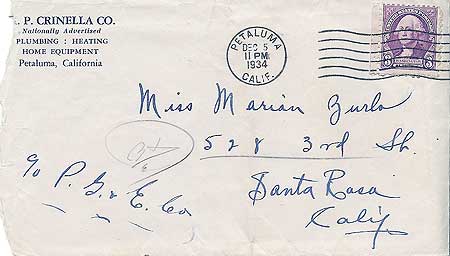 . P. CRINELLA CO.
Nationally Advertised
PLUMBING : HEATING
HOME EQUIPMENT
Petaluma, California
PETALUMA
DEC 5
11 PM
1934
CALIF.
3
Miss Marian Zurlo
528 3rd St.
Santa Rosa
Calif.
c/o P. G. & E. Co